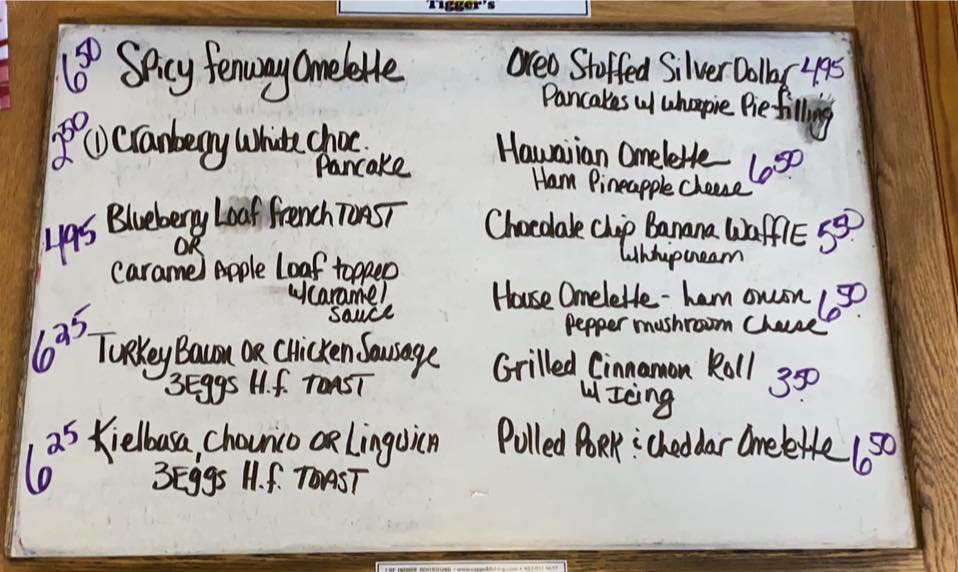 Tigger's
6.50 Spicy Fenway Omelette
2.50 (1) Cranberry White choc.
Pancake
4.95 Blueberry Loaf french TOAST
OR
Caramel Apple Loaf topped
w/caramel
sauce
6.25 Turkey Bacon OR Chicken Sausage
3 Eggs H.f. TOAST
6.25 Kielbasa, Chourico OR Linguica
3 Eggs H.f. TOAST
Oreo Stuffed Silver Dollar 4.95
Pancakes w/ whoopie Pie filling
Hawaiian Omelette 6.50
Ham Pineapple Cheese
Chocolate Chip Banana Waffle 5.50
w/whipcream
House Omelette - ham onion 6.50
Pepper mushroom Cheese
Grilled Cinnamon Roll 3.50
w/ Icing
Pulled Pork & Cheddar Omelette 6.50